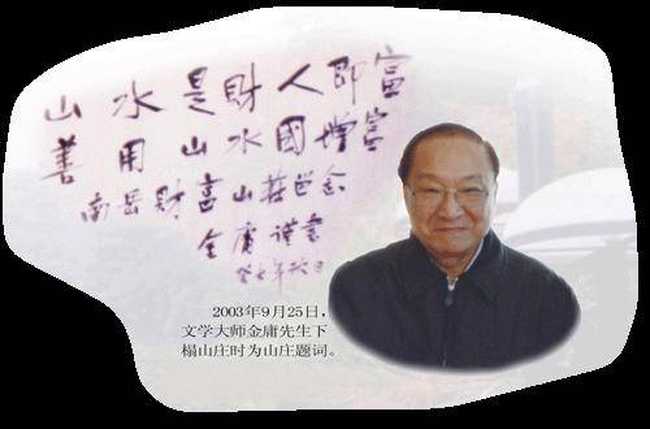 山水是財人即富
善用山水國增富
南岳財富山莊
金庸謹書
2003年9月25日，
文学大师金庸先生下
榻山庄时为山庄题词。